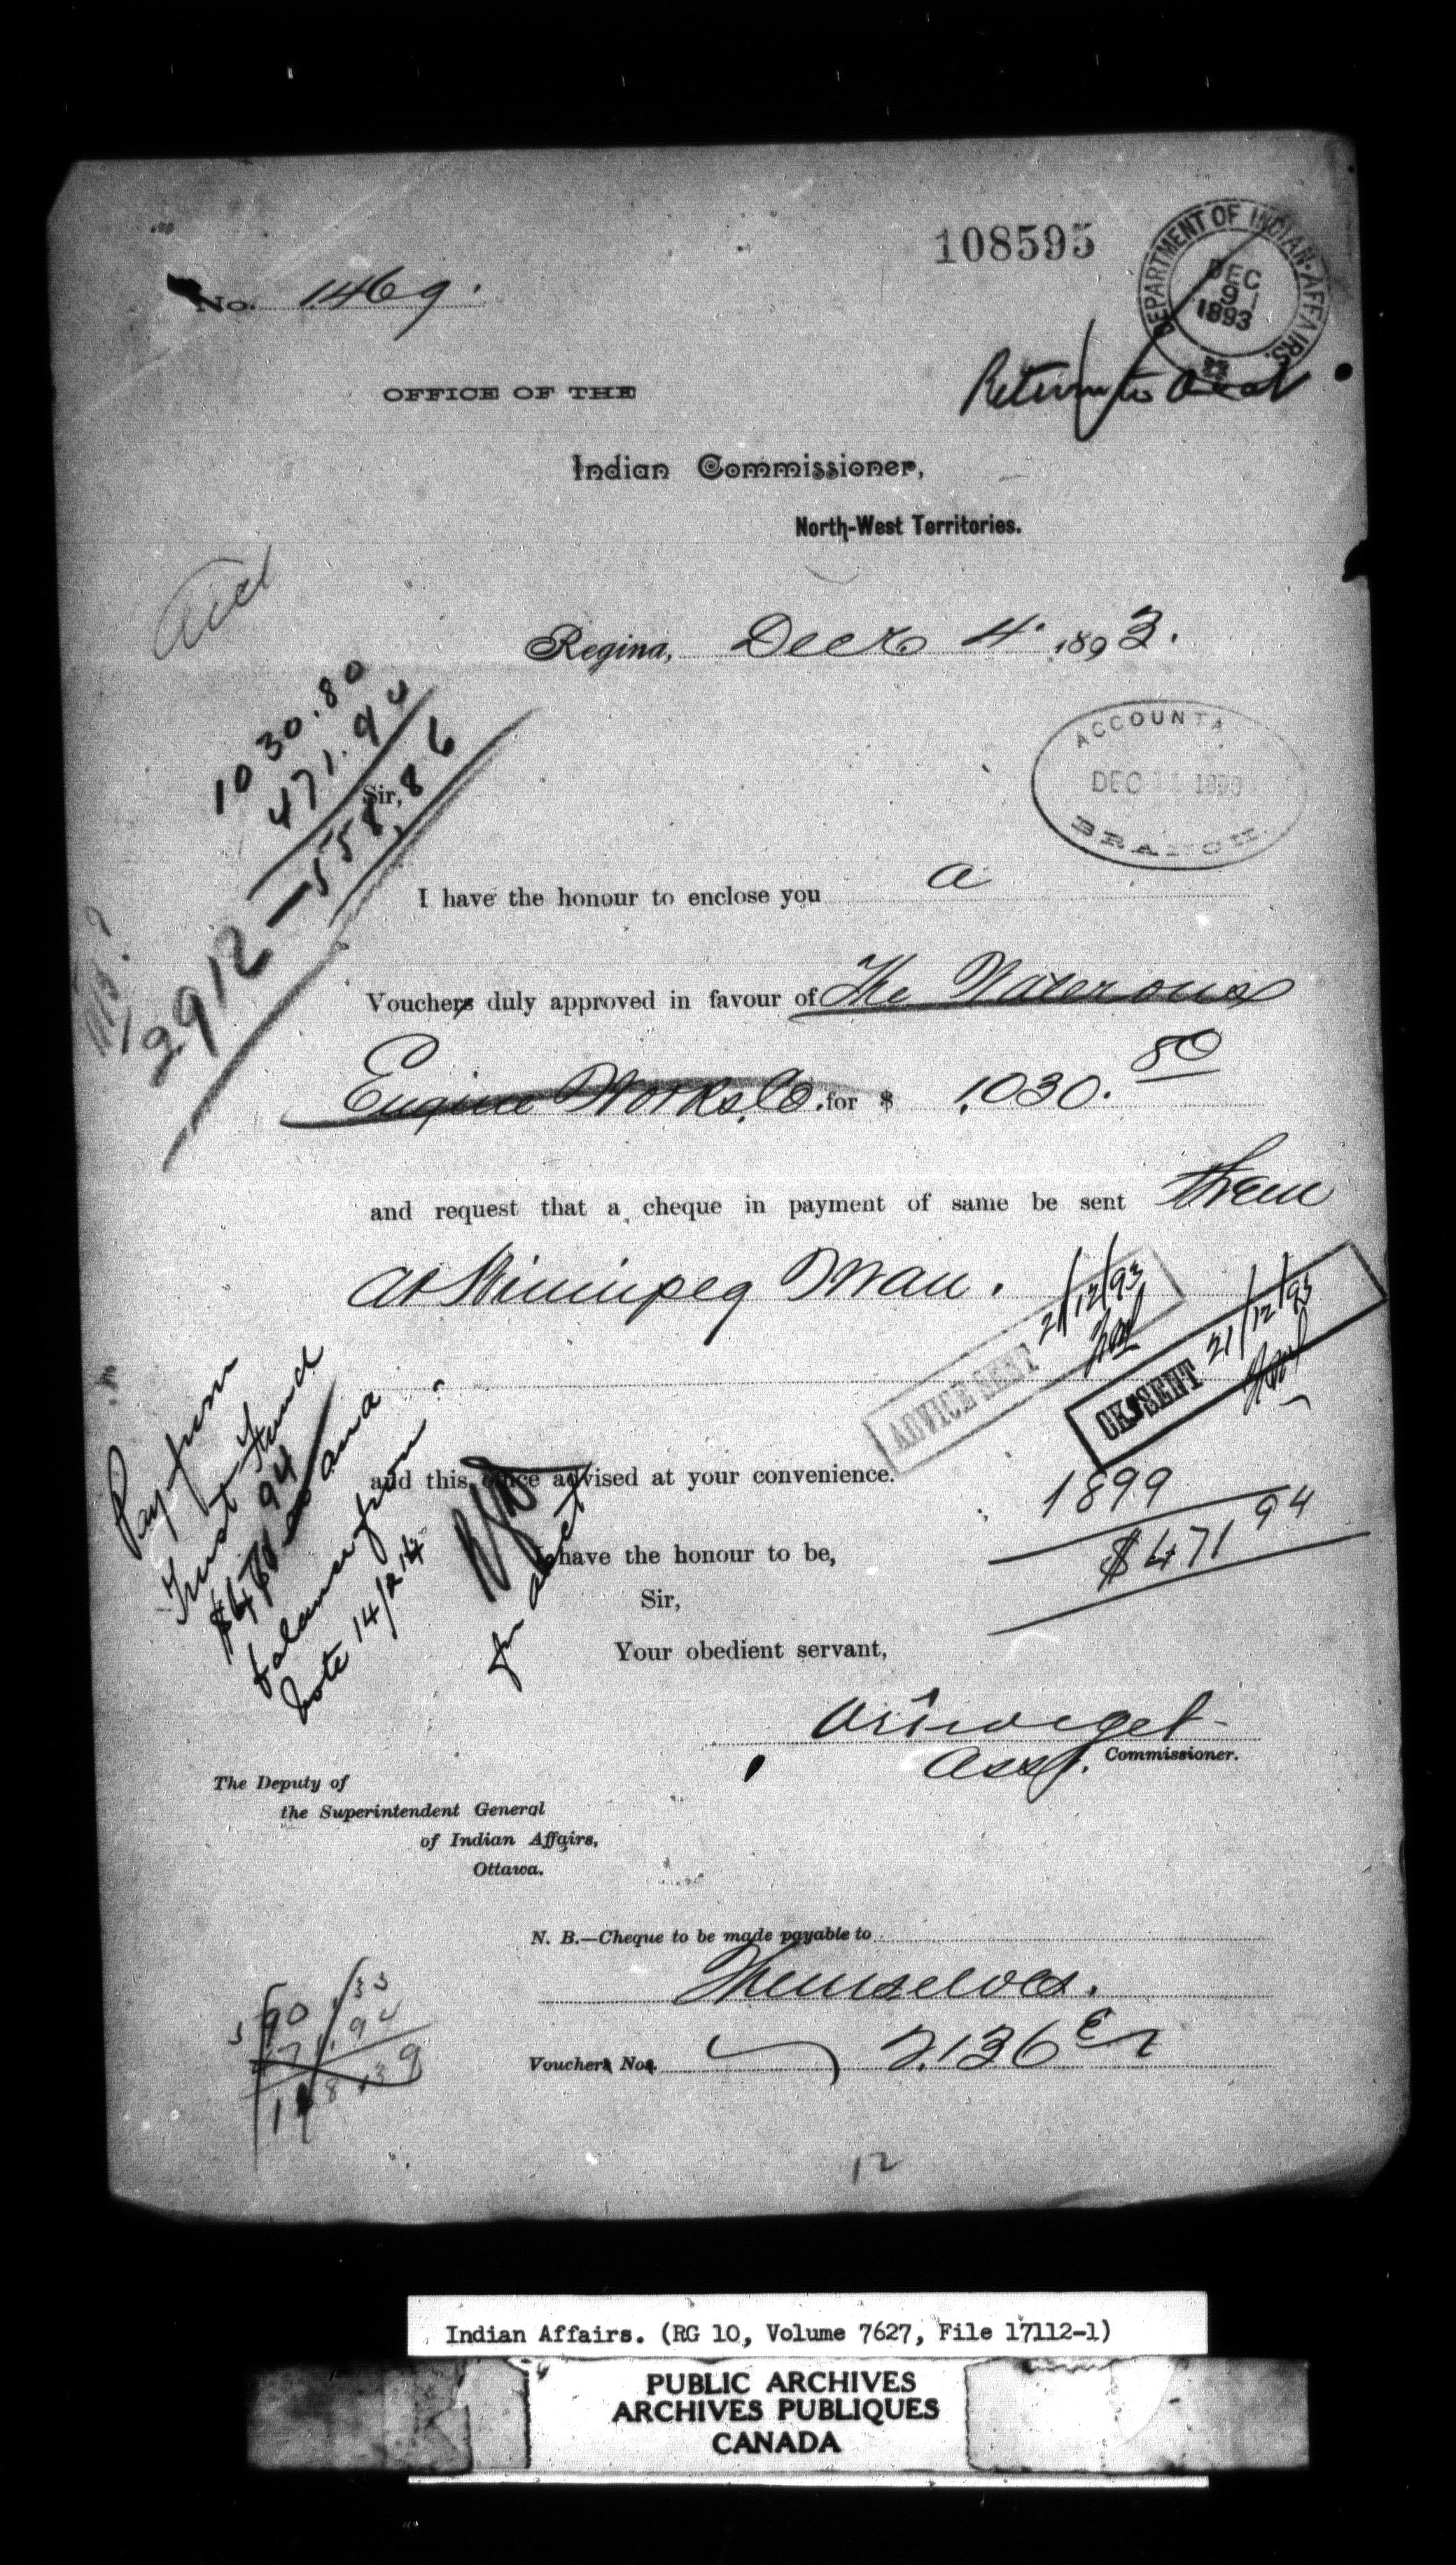 108595
DEPARTMENT OF INDIAN AFFAIRS.
DEC
9
1893
No. 1469.
Return to
OFFICE OF THE
Indian Commissioner,
North-West Territories.
Regina, Decr 4. 1893.
1030.80
471.94
558.86
2912
ACCOUNTA
DEC 11 1893
BRANCH.
Sir,
I have the honour to enclose you a
Vouchers duly approved in favour of The Waterous
Engine Works Co. for $ 1030.80
and request that a cheque in payment of same be sent them
at Winnipeg Man.
ADVICE SENT 21/12/93
CK. SENT 21/12/93
Pay from
Trust Fund
balance from
vote 14/2
for acct
and this office advised at your convenience.
1899
$471 94
I have the honour to be,
Sir,
Your obedient servant,
Asst. Commissioner.
The Deputy of
the Superintendent General
of Indian Affairs,
Ottawa.
N. B.—Cheque to be made payable to
Themselves.
Vouchers Nos. 2136
12
Indian Affairs. (RG 10, Volume 7627, File 17112-1)
PUBLIC ARCHIVES
ARCHIVES PUBLIQUES
CANADA